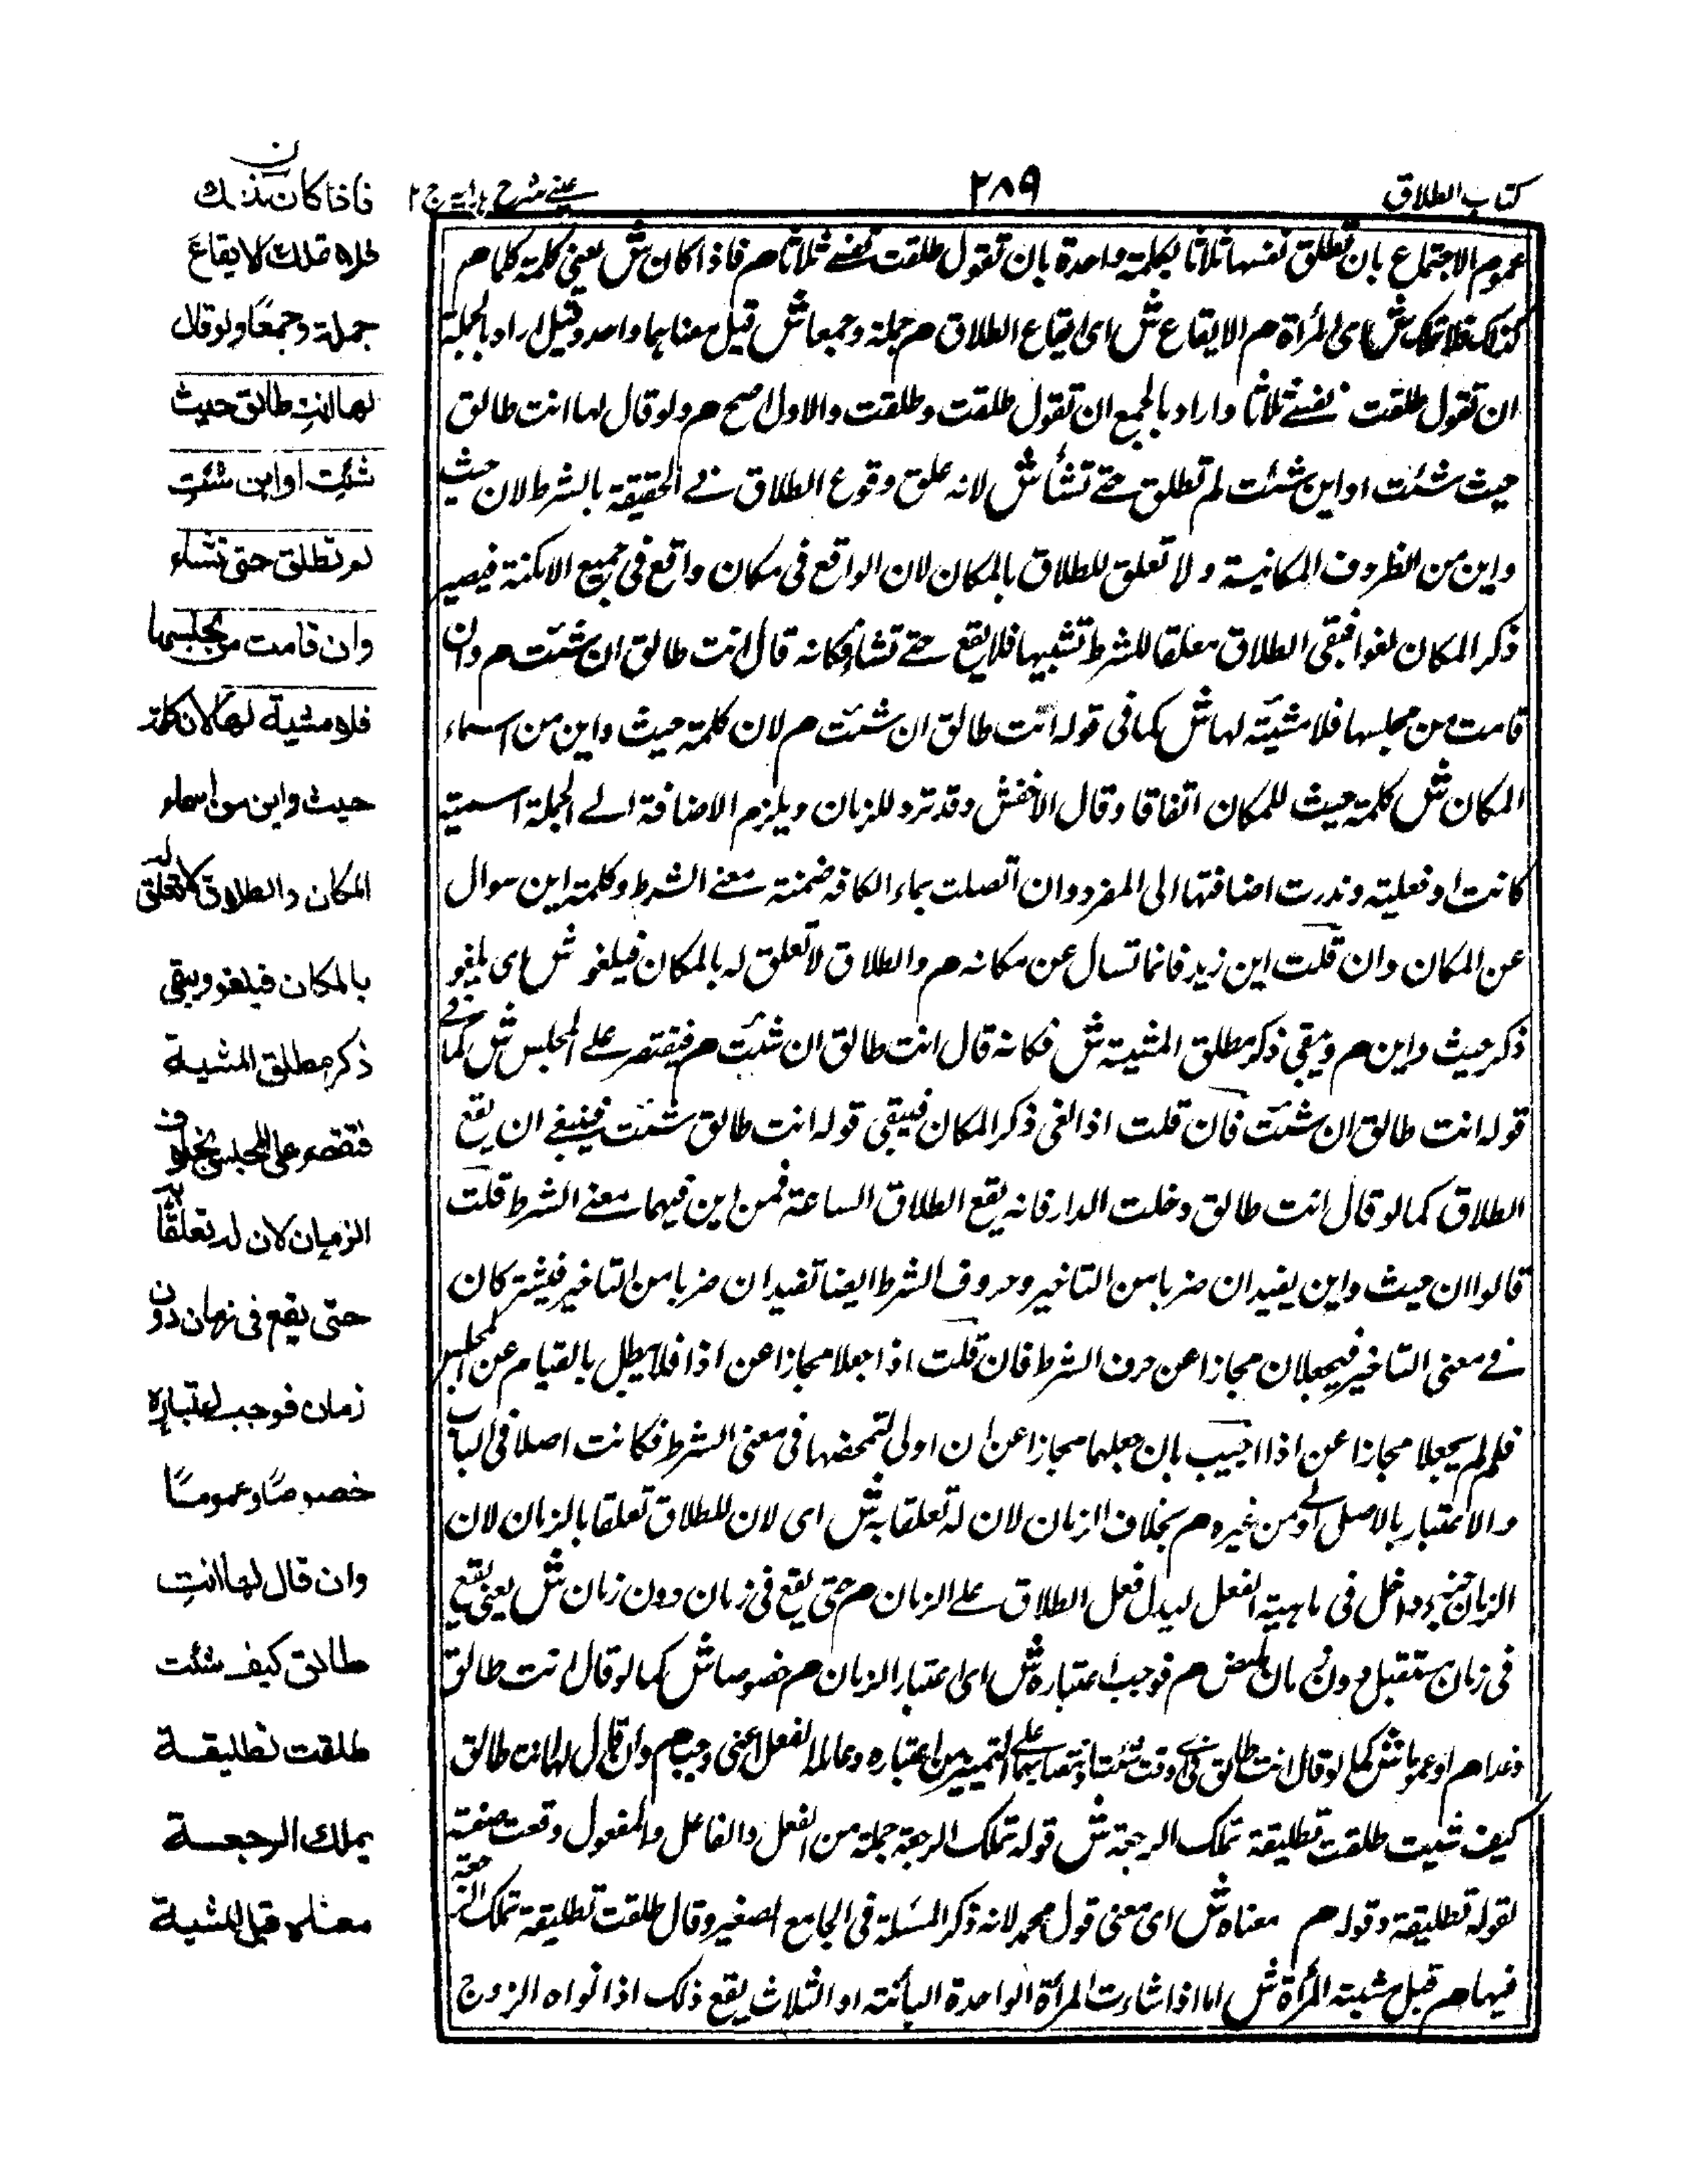 كتاب الطلاق
٢٨٩
عينے شرح ہدایہ ج ٢
عموم الاجتماع بان تطلق نفسها ثلاثا بكلمة واحدة بان تقول طلقت نفسے ثلاثا م فاذا كان ش يعنى كلمة كلما م
كذلك فلا تملك ش اى المرأة م الايقاع ش اى ايقاع الطلاق م جملة وجمعا ش قيل معناهما واحد وقيل اراد بالجملة
ان تقول طلقت نفسے ثلاثا واراد بالجمع ان تقول طلقت وطلقت وطلقت والاول اصح م ولو قال لها انت طالق
حيث شئت او اين شئت لم تطلق حتے تشأ ش لانه علق وقوع الطلاق فے الحقيقة بالشرط لان حيث
واين من الظروف المكانية ولا تعلق للطلاق بالمكان لان الواقع فى مكان واقع فى جميع الامكنة فيصير
ذكر المكان لغوا فبقى الطلاق معلقا للشرط تشبيها فلا يقع حتے تشأ فكانه قال انت طالق ان شئت م وان
قامت من مجلسها فلا مشيئة لها ش كما فى قوله انت طالق ان شئت م لان كلمة حيث واين من اسماء
المكان ش كلمة حيث للمكان اتفاقا وقال الاخفش وقد ترد للزمان ويلزم الاضافة الے الجملة اسمية
كانت او فعلية وندرت اضافتها الى المفرد وان اتصلت بماء الكافه ضمنة معنے الشرط وكلمة اين سوال
عن المكان وان قلت اين زيد فانما تسال عن مكانه م والطلاق لا تعلق له بالمكان فيلغو ش اى يلغو
ذكر حيث واين م ويبقى ذكر مطلق المشية ش فكانه قال انت طالق ان شئت م فيقتصر علے المجلس ش كما فے
قوله انت طالق ان شئت فان قلت اذا الغى ذكر المكان فيبقى قوله انت طالق شئت فينبغے ان يقع
الطلاق كما لو قال انت طالق دخلت الدار فانه يقع الطلاق الساعة فمن اين فيهما معنے الشرط قلت
قالوا ان حيث واين يفيدان ضربا من التاخير وحروف الشرط ايضا تفيد ان ضربا من التاخير فيشتركان
فے معنى التاخير فيجعلان مجازا عن حرف الشرط فان قلت اذا جعلا مجازا عن اذا فلا يبطل بالقيام عن المجلس
فلم لم يجعلا مجازا عن اذا اجيب بان جعلهما مجازا عن ان اولى لتمحضها فى معنى الشرط فكانت اصلا فى الباب
والاعتبار بالاصل اولے من غيره م بخلاف الزمان لان له تعلقا به ش اى لان للطلاق تعلقا بالزمان لان
الزمان جزء داخل فى ماهية الفعل ليدل فعل الطلاق علے الزمان م حتى يقع فى زمان دون زمان ش يعنى يقع
فى زمان مستقبل دون زمان ماض م فوجب اعتباره ش اى اعتبار الزمان م خصوصا ش كما لو قال انت طالق
غدا م او عموما ش كما لو قال انت طالق فے اى وقت شئت وانتصابهما علے التمييز من اعتباره وعاملها الفعل اعنى وجب م وان قال لها انت طالق
كيف شئت طلقت تطليقة تملك الرجعة ش قوله تملك الرجعة جملة من الفعل والفاعل والمفعول وقعت صفة
لقوله تطليقة وقوله م معناه ش اى معنى قول محمد لانه ذكر المسئلة فى الجامع الصغير وقال طلقت تطليقة تملك الرجعة
فيها م قبل مشية المرأة ش اما اذا شاءت المرأة الواحدة البائنة او الثلاث يقع ذلك اذا نواه الزوج
فاذا كان كذلك
فلا تملك الايقاع
جملة وجمعًا ولو قال
لها انتِ طالق حيث
شئتِ او اين شئتِ
لم تطلق حتى تشاء
وان قامت من مجلسها
فلا مشية لها لان كلمة
حيث واين من اسماء
المكان والطلاق لا تعلق له
بالمكان فيلغو ويبقى
ذكر مطلق المشية
فتقتصر على المجلس بخلاف
الزمان لان له تعلقًا به
حتى يقع فى زمان دون
زمان فوجب اعتباره
خصوصًا وعمومًا
وان قال لها انتِ
طالق كيف شئت
طلقت تطليقة
يملك الرجعة
معناه قبل المشية